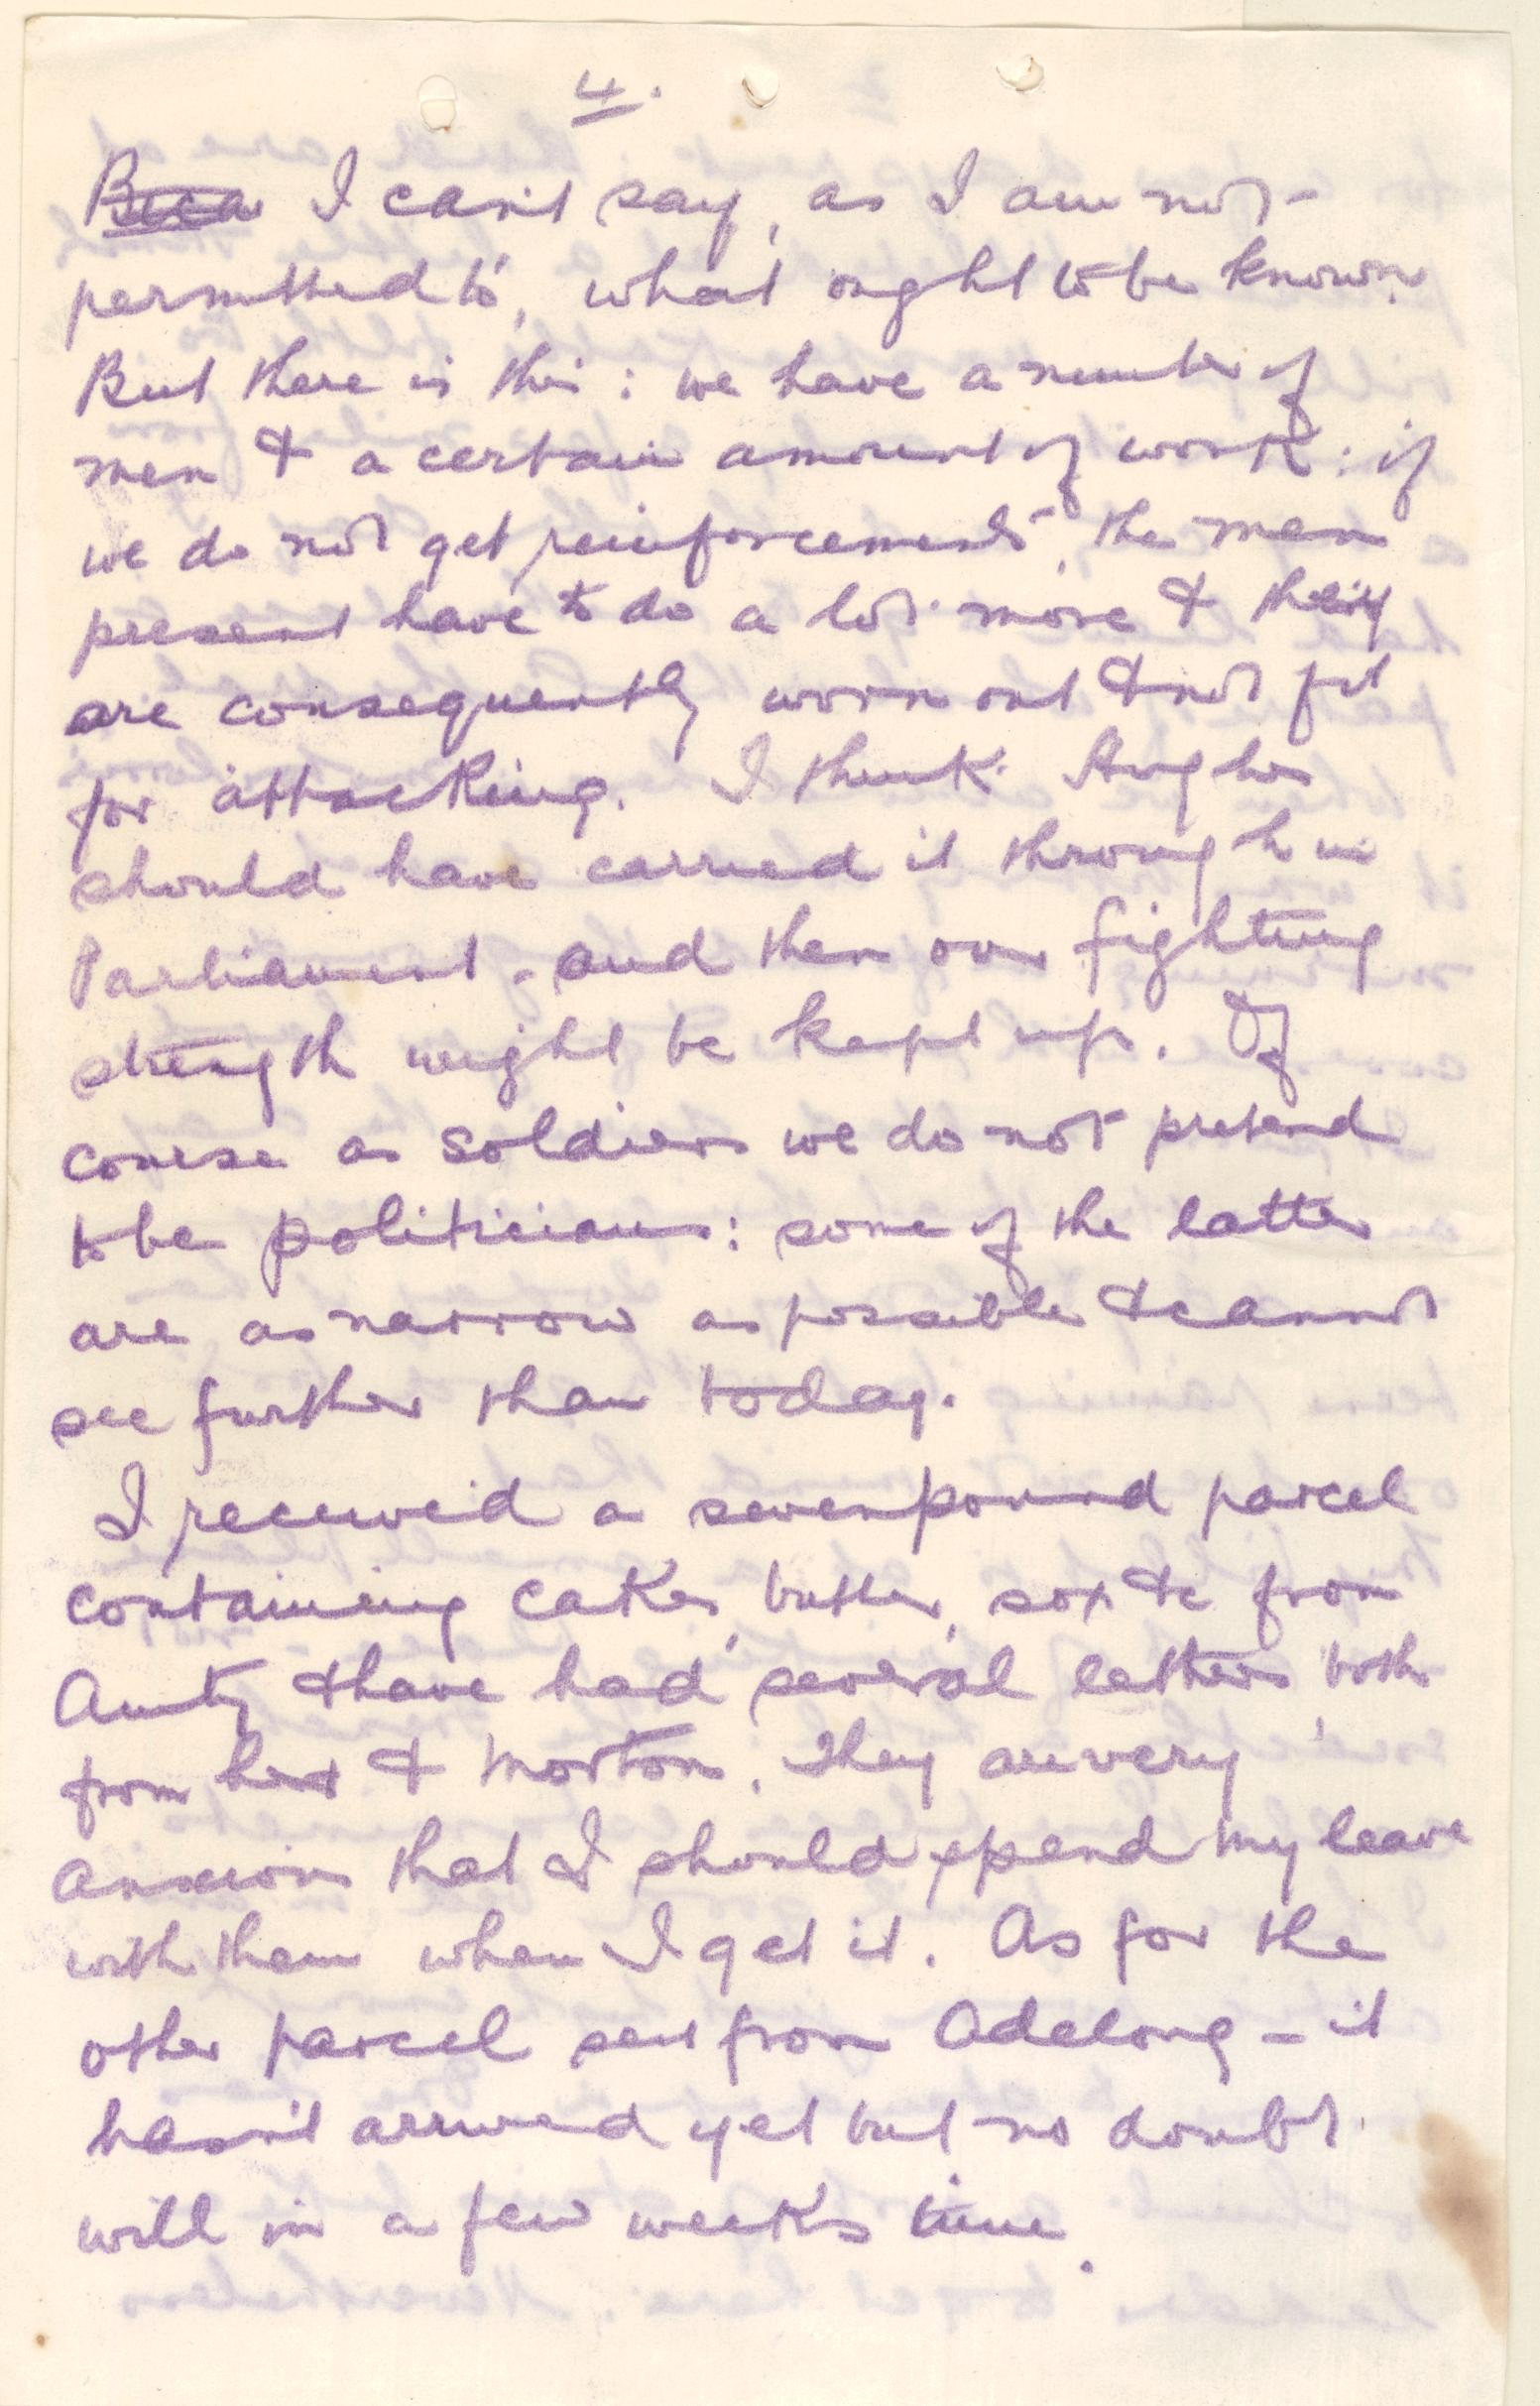 4.
Beca I can't say, as I am not
permitted to, what ought to be known.
But there is this: we have a number of
men & a certain amount of work: if
we do not get reinforcements, the men
present have to do a lot more & they
are consequently worn out & not fit
for attacking. I think Hughes
should have carried it through in
Parliament - and then our fighting
strength might be kept up. Of
course as soldiers we do not pretend
to be politicians: some of the latter
are as narrow as possible & cannot
see further than today.
I received a sevenpound parcel
containing cakes, butter, sox &c from
Aunty & have had several letters, both
from her & Morton. They are very
anxious that I should spend my leave
with them when I get it. As for the
other parcel sent from Adelong - it
hasn't arrived yet but no doubt
will in a few weeks time.